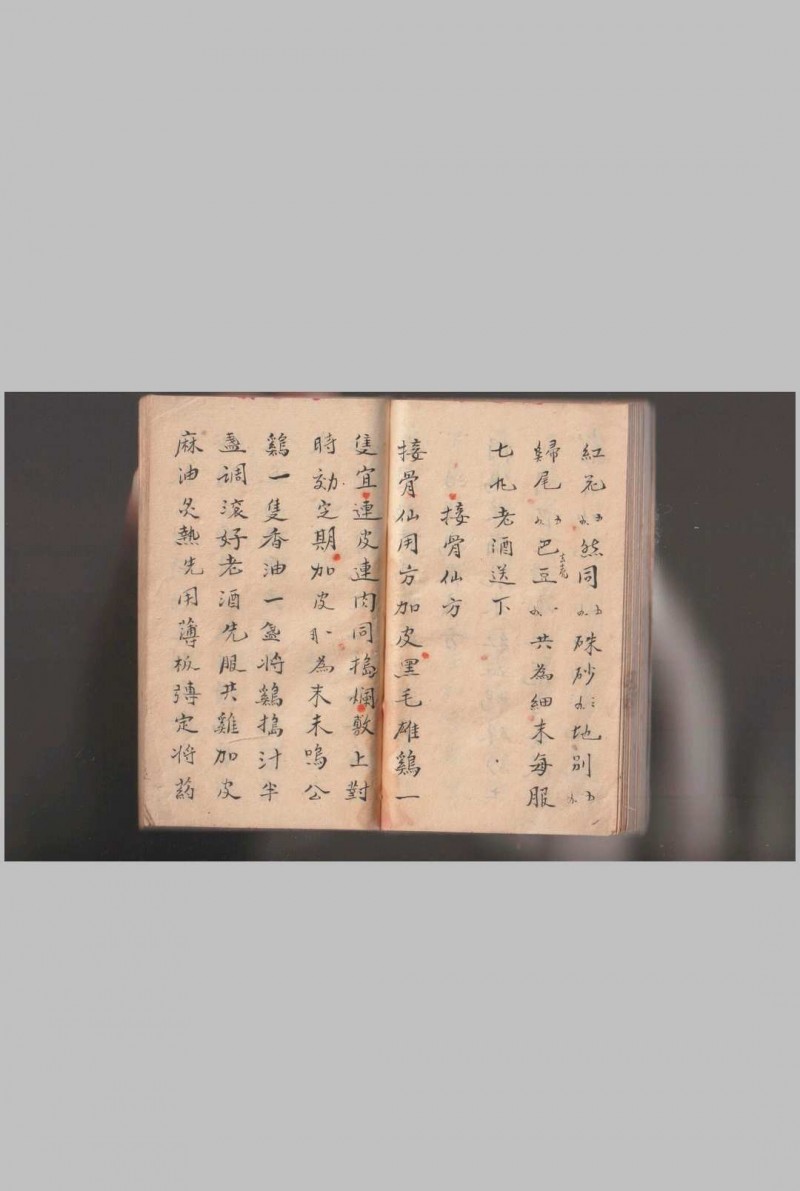 紅花 然同 硃砂 地別
歸尾 巴豆去壳 共為細末每服
七九老酒送下
接骨仙方
接骨仙用方加皮黑毛雄鷄一
隻宜連皮連肉同搗爛敷上對
時効定期加皮 為末未嗚公
鷄一隻香油一盞將鷄搗汁半
盞調滚好老酒先服共雞加皮
麻油炙熱先用薄板 定將药